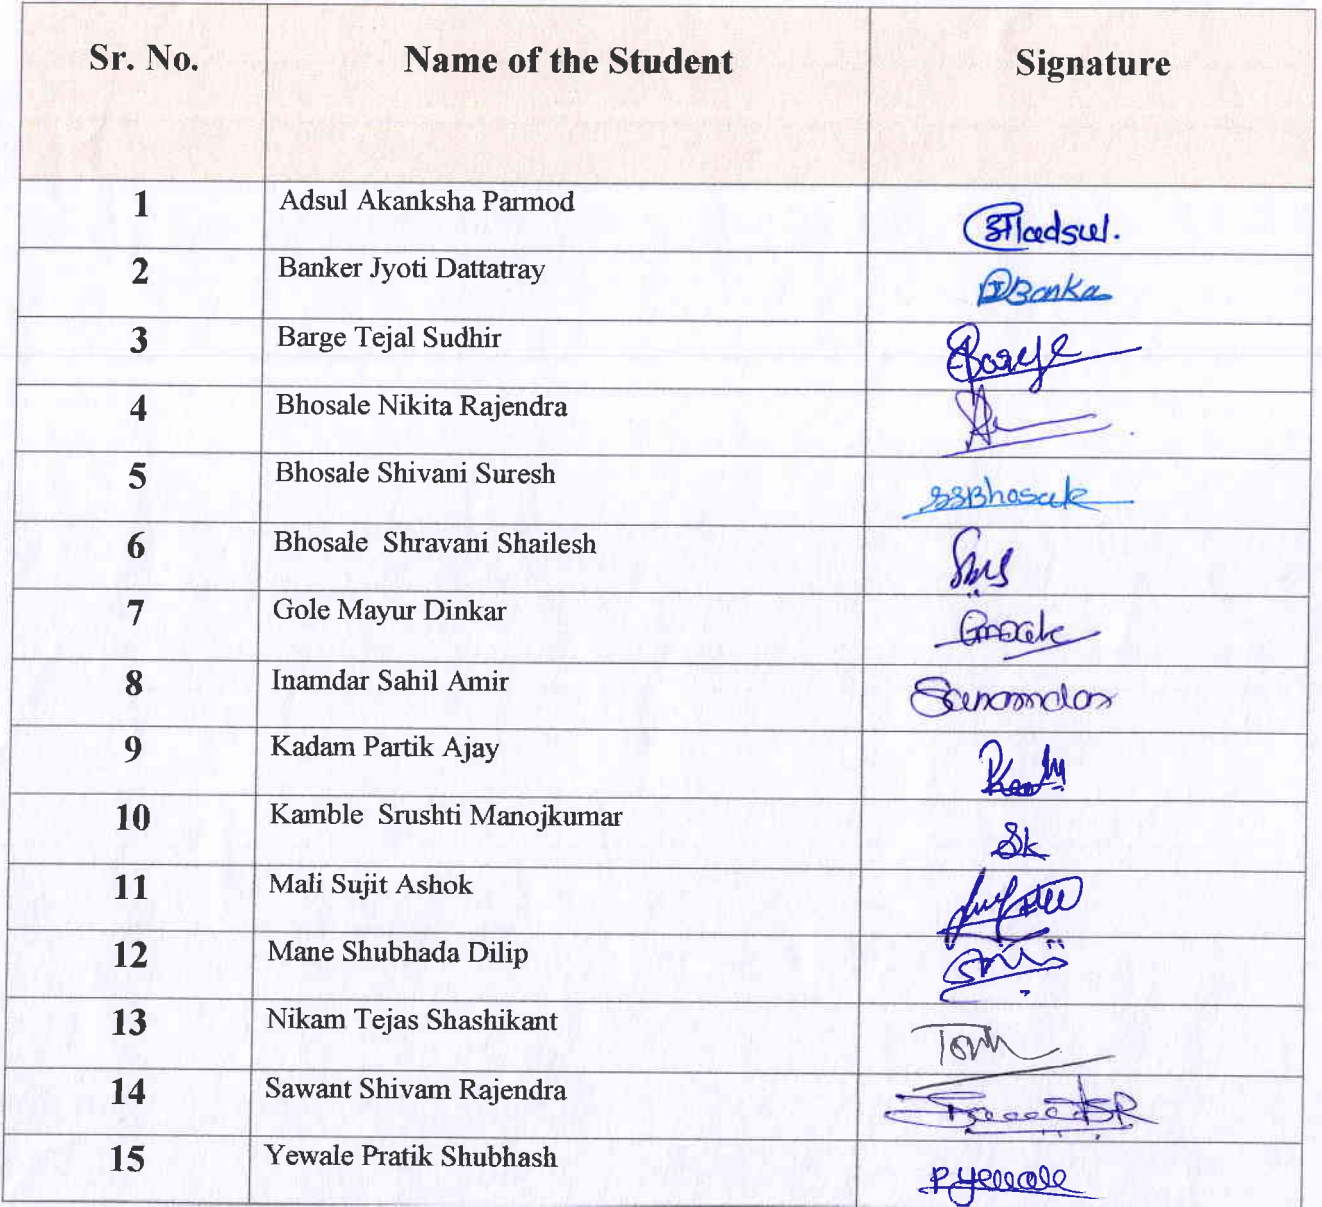 Sr. No. Name of the Student Signature
1 Adsul Akanksha Parmod
2 Banker Jyoti Dattatray
3 Barge Tejal Sudhir Barge
4 Bhosale Nikita Rajendra
5 Bhosale Shivani Suresh SSBhosale
6 Bhosale Shravani Shailesh
7 Gole Mayur Dinkar
8 Inamdar Sahil Amir
9 Kadam Partik Ajay
10 Kamble Srushti Manojkumar Sk
11 Mali Sujit Ashok
12 Mane Shubhada Dilip
13 Nikam Tejas Shashikant
14 Sawant Shivam Rajendra
15 Yewale Pratik Shubhash P.Yewale